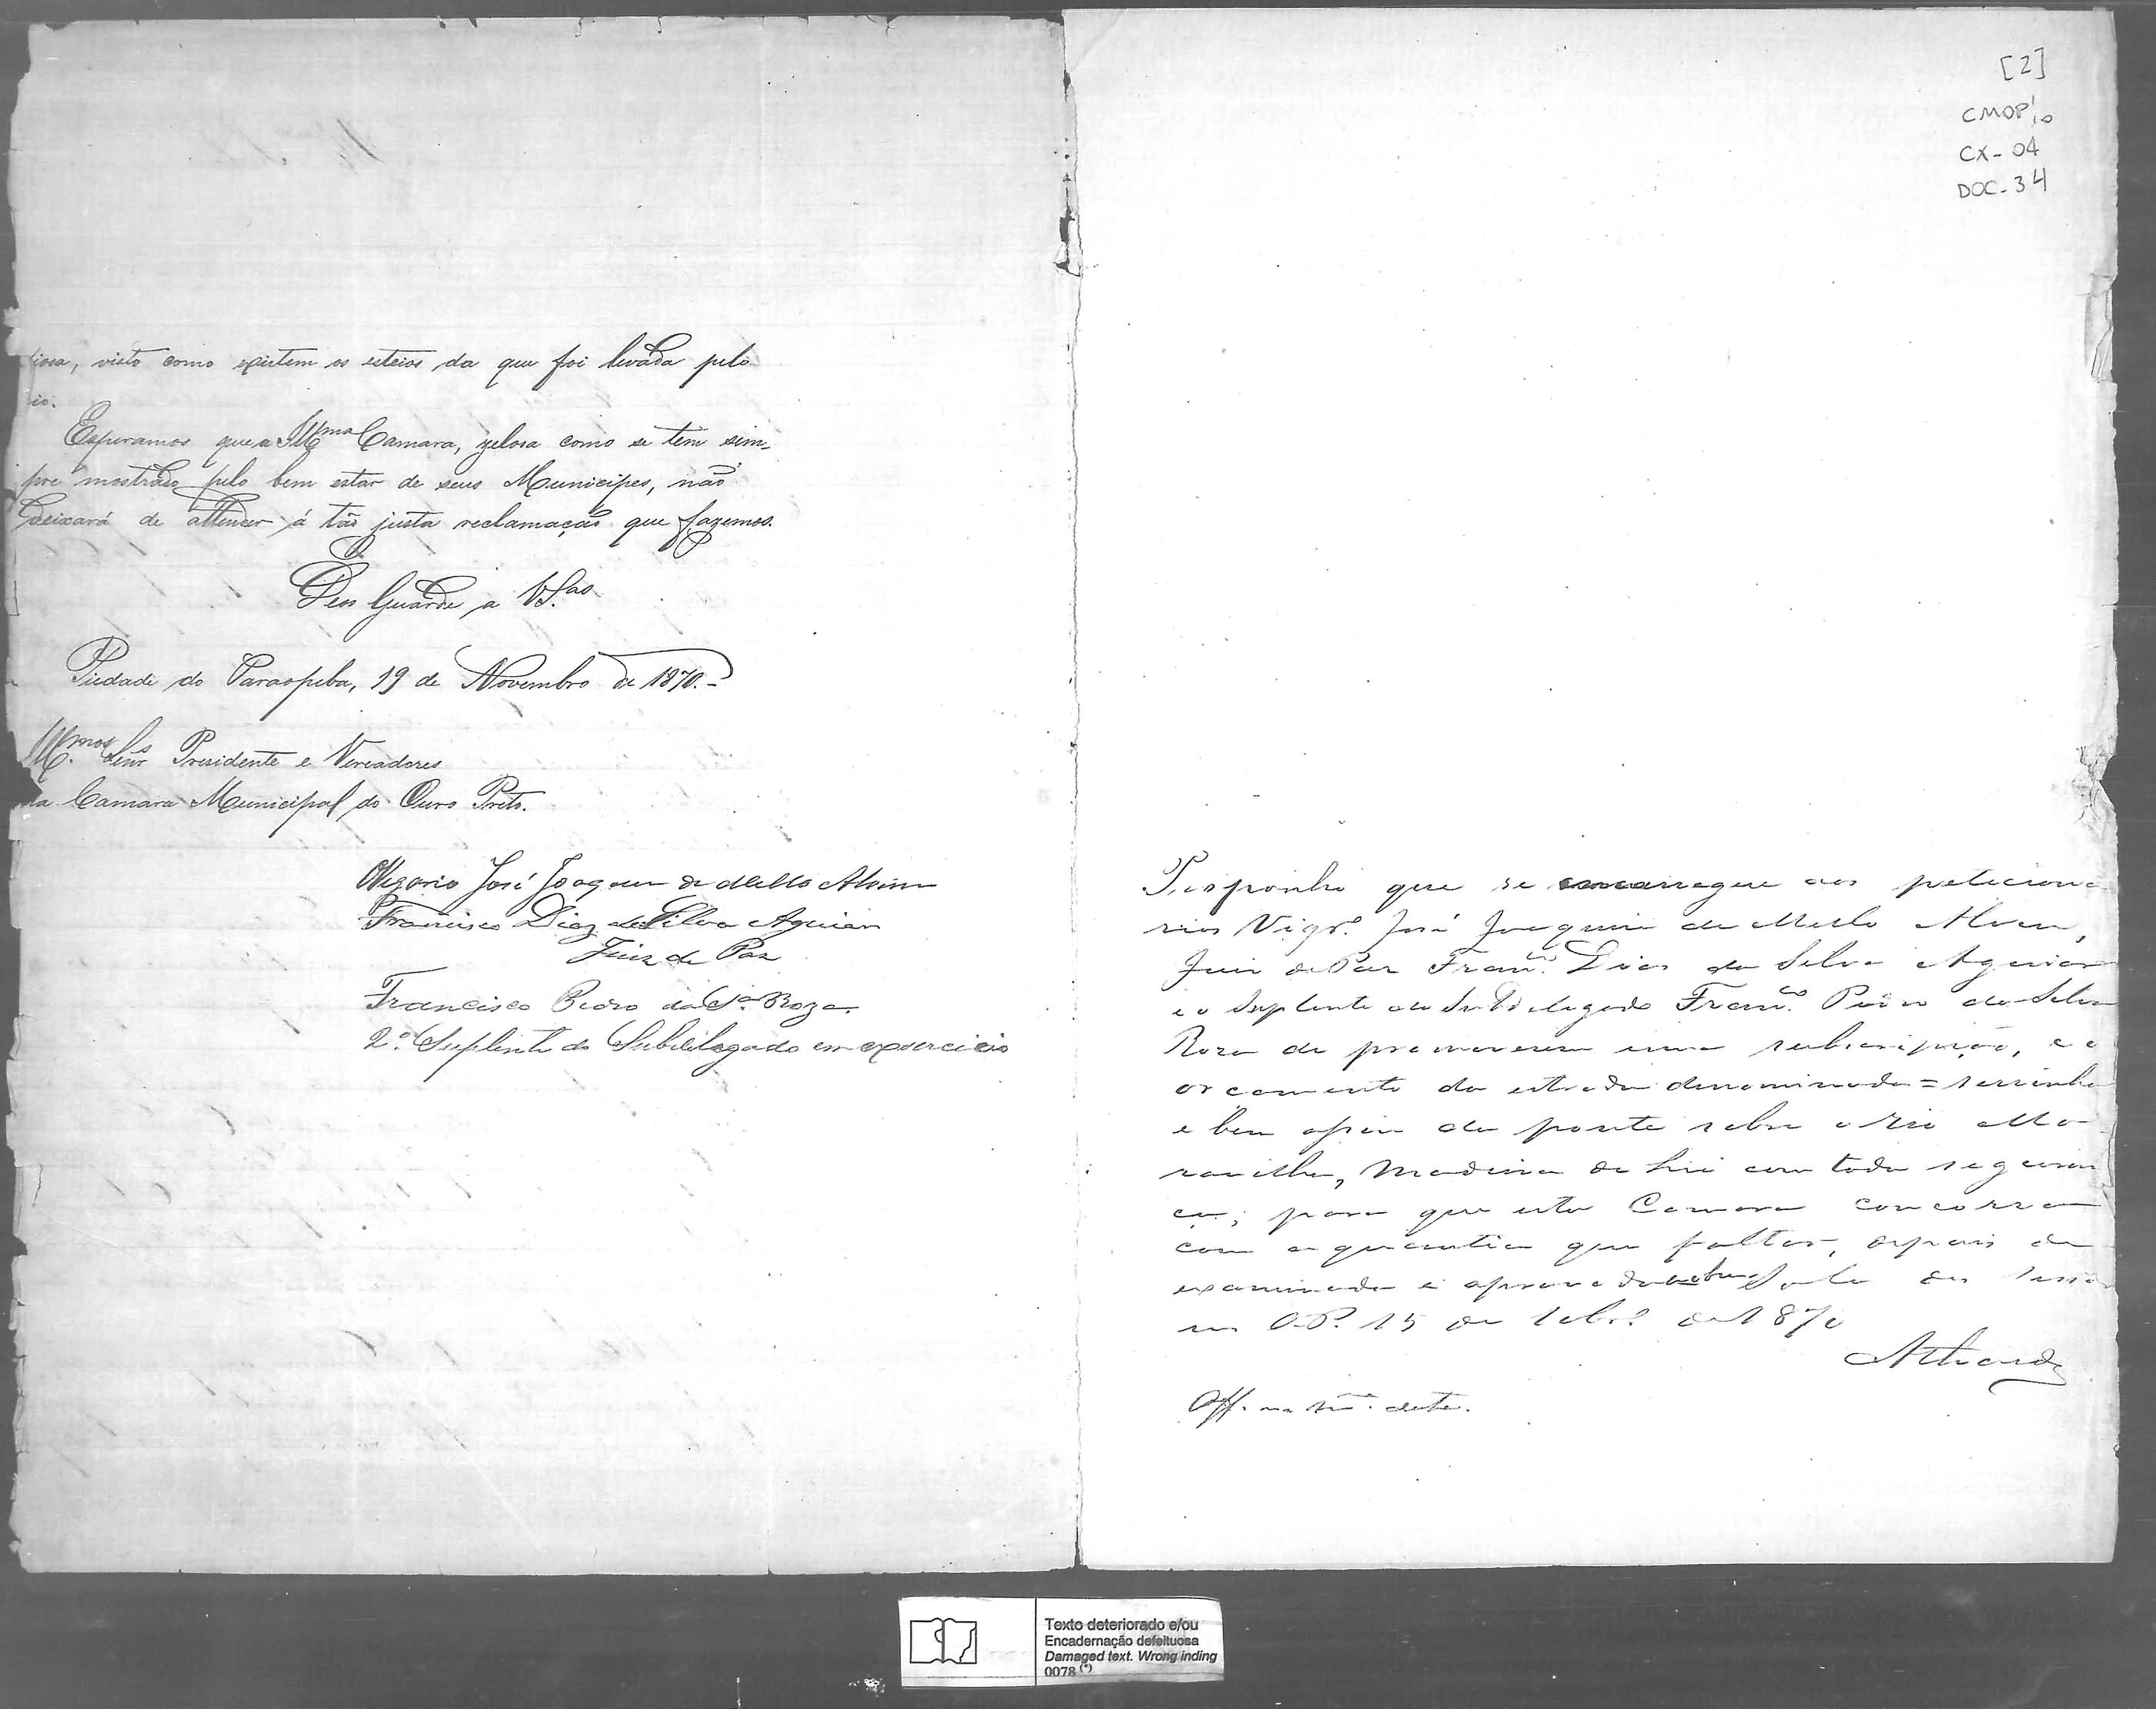 iosa, visto como existem os esteios da que foi levada pelo
io.
Esperamos que a Illma Camara, zelosa como se tem sem-
pre mostrado pelo bem estar de seus Municipes, não
deixará de attender á tão justa reclamação que fazemos.
Deos Guarde a V.Sas
Piedade do Paraopeba, 19 de Novembro de 1870.-
Illmos Senrs Presidente e Vereadores
da Camara Municipal do Ouro Preto.
Vigario José Joaquim de Mello Alvim
Francisco Diaz da Silva Aguiar
Juiz de Paz
Francisco Pedro da Sa Roza.
2º Suplente do Subdelegado em exercicio
[2]
CMOP
CX-04
DOC-34
que se encarregue aos peticiona
rios Vigrº José Joaquim de Mello
Juiz de Paz Franco Dias da Silva Aguiar
e o Suplente do Subdelegado Franco Pedro da Silva
Roza de promoverem uma subscripção, e o
orcamento da estrada denominada = serrinha
e bem assim da ponte sobre o Rio Ma
ravilha, Madeira de Lei com toda seguran
ça, para que esta Camara concorra
com a quantia que faltar, depois de
examinada e aprovada Sala das
O.P. 15 de de 1870
Off. na data.
Texto deteriorado e/ou
Encadernação defeituosa
Damaged text. Wrong inding
0078 (*)